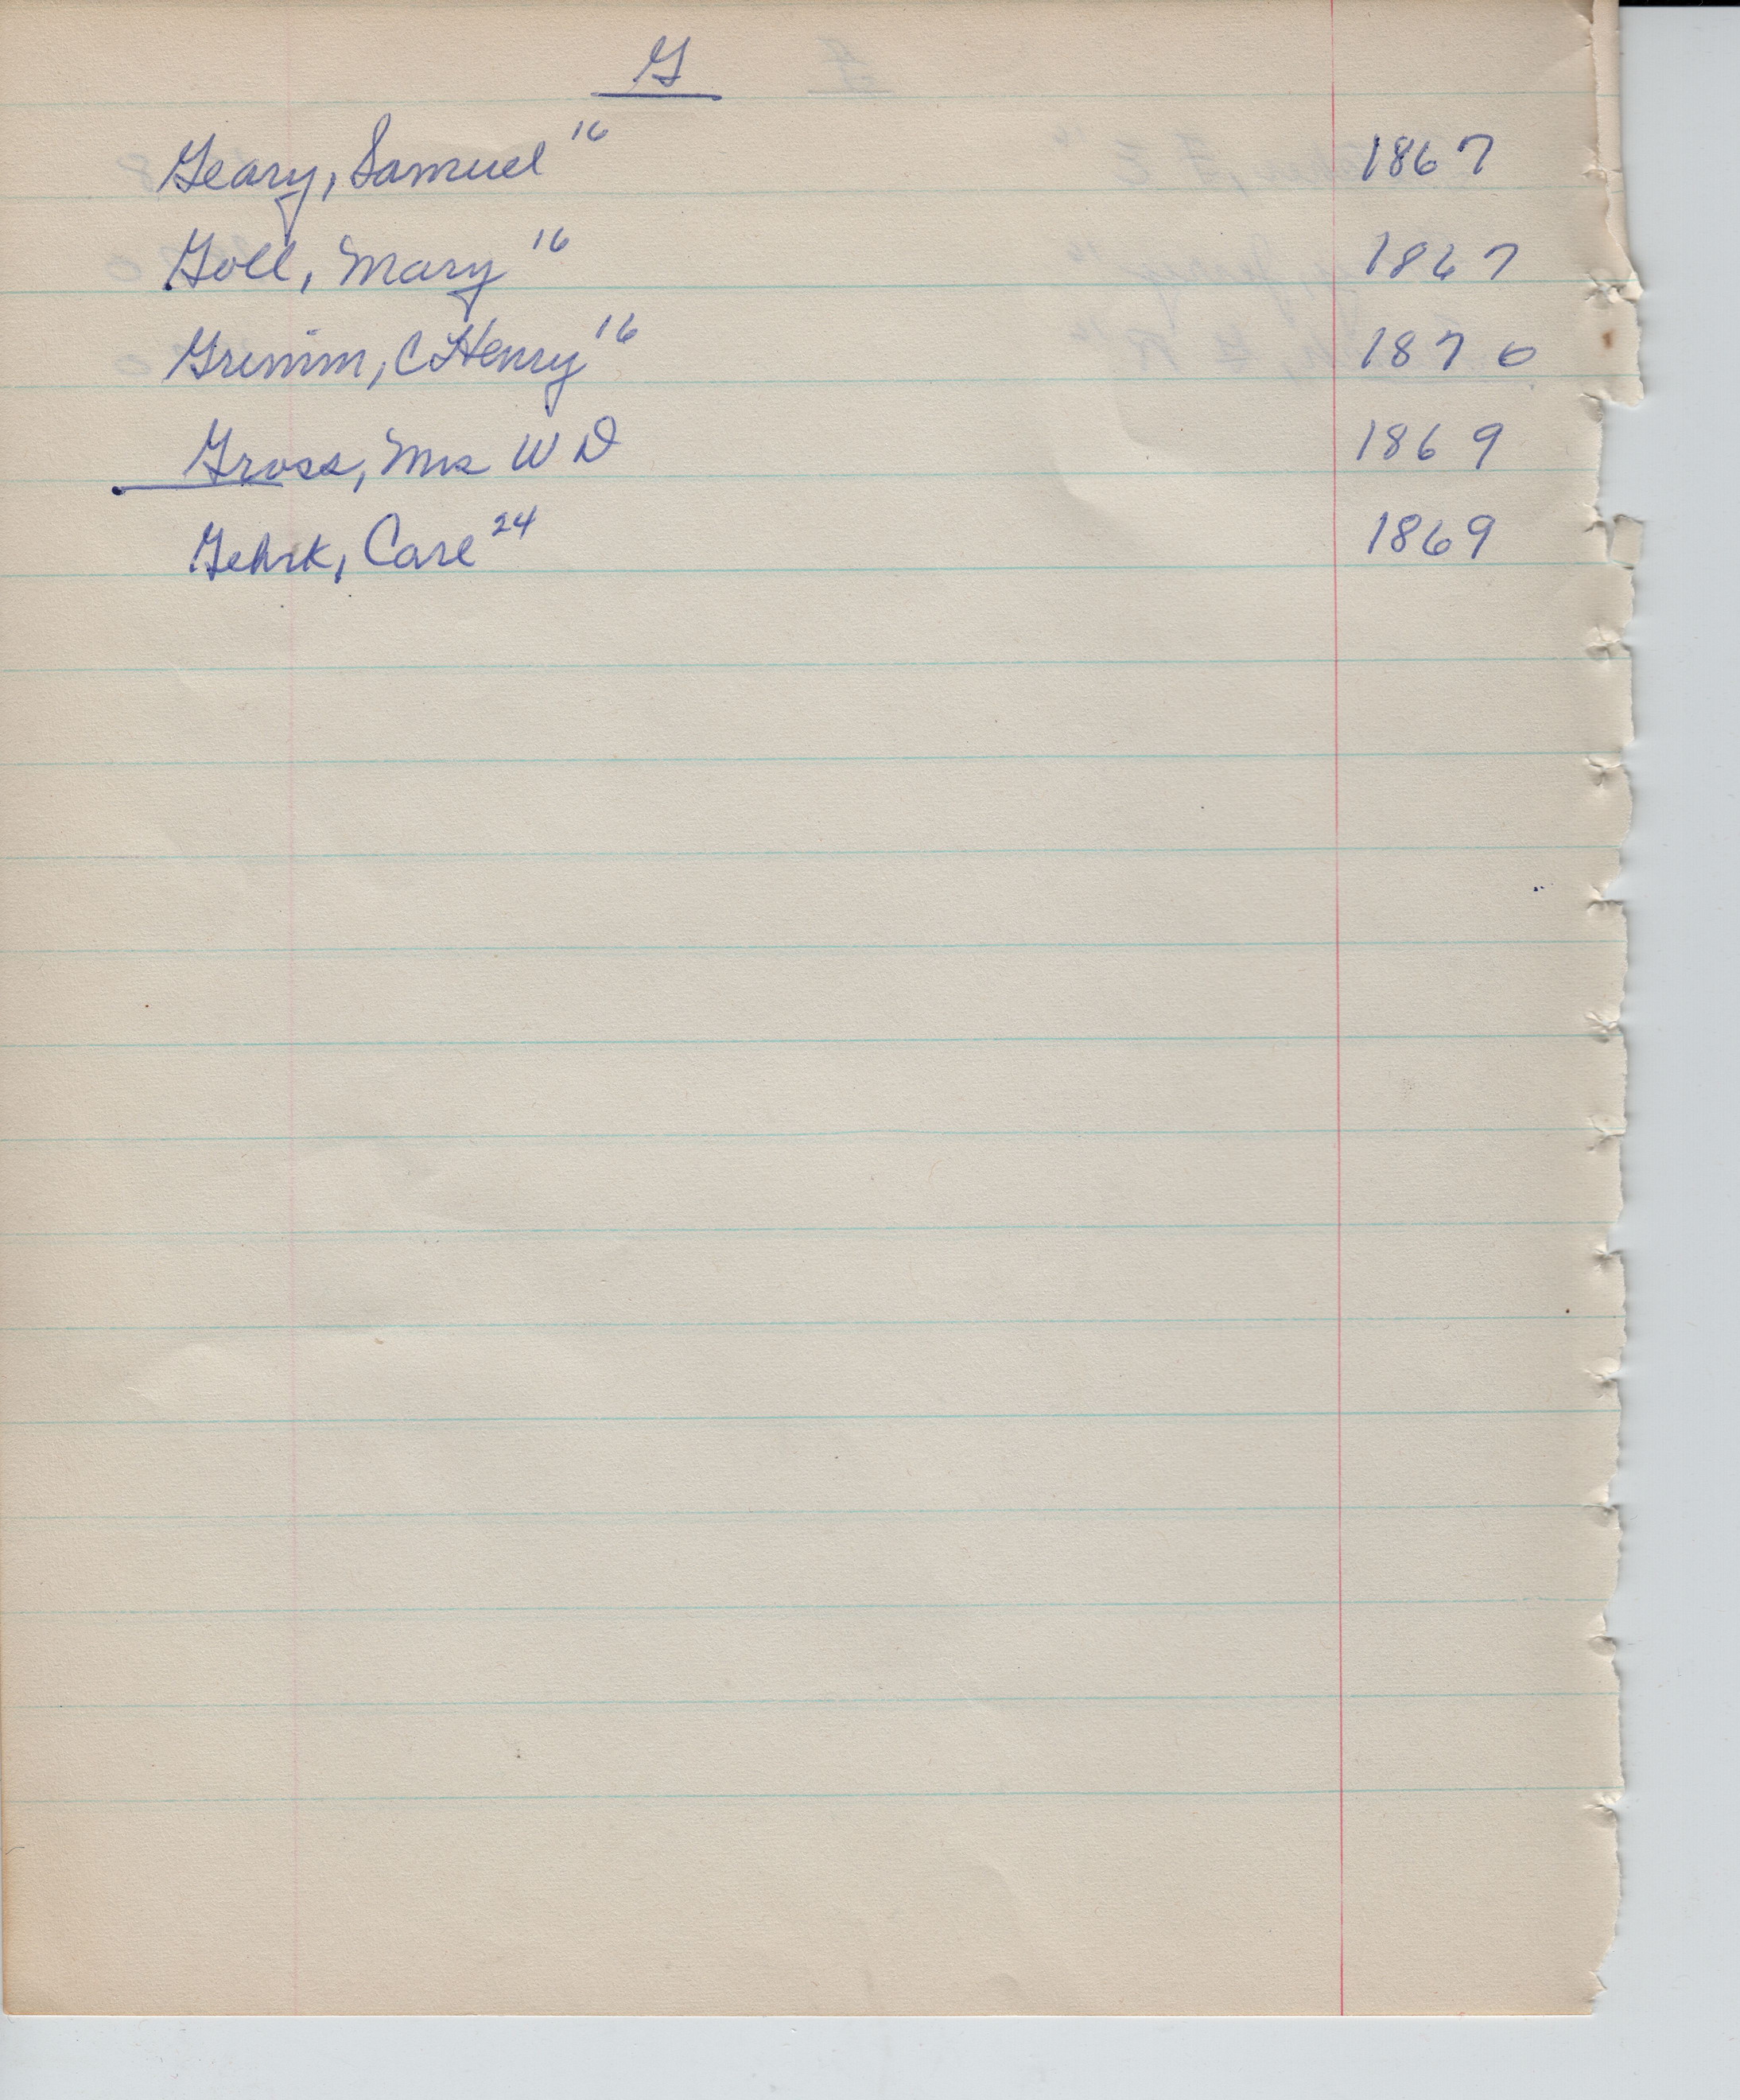 G
Geary, Samuel 16 1867
Goll, Mary 16 1867
Grimm, C Henry 16 1870
Gross, Mrs W D 1869
Gehrk, Carl 24 1869